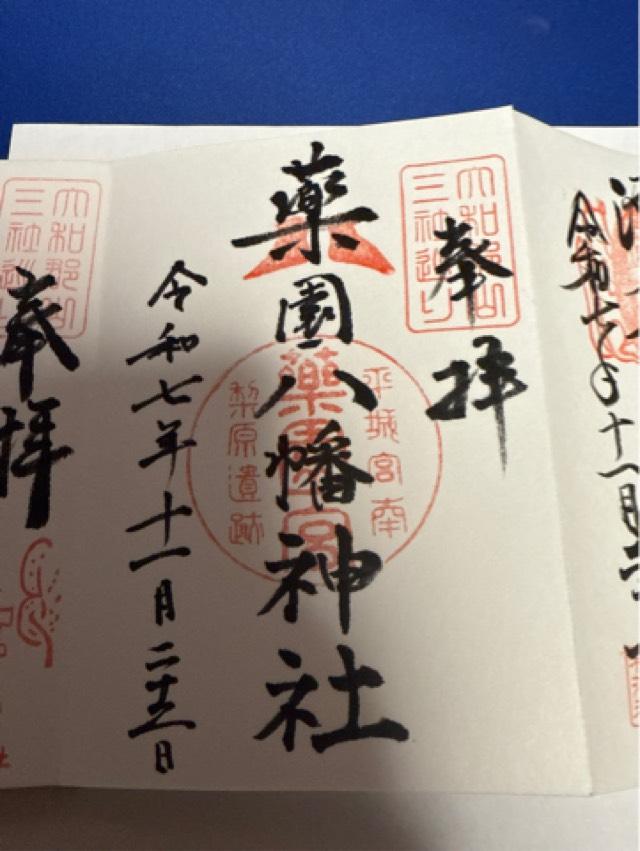 令和七年十一月
大和郡山
三社巡り
奉拝
藥園八幡神社
平城宮南
藥園宮
梨原遺跡
令和七年十一月二十三日
大和郡山
三社巡り
奉拝